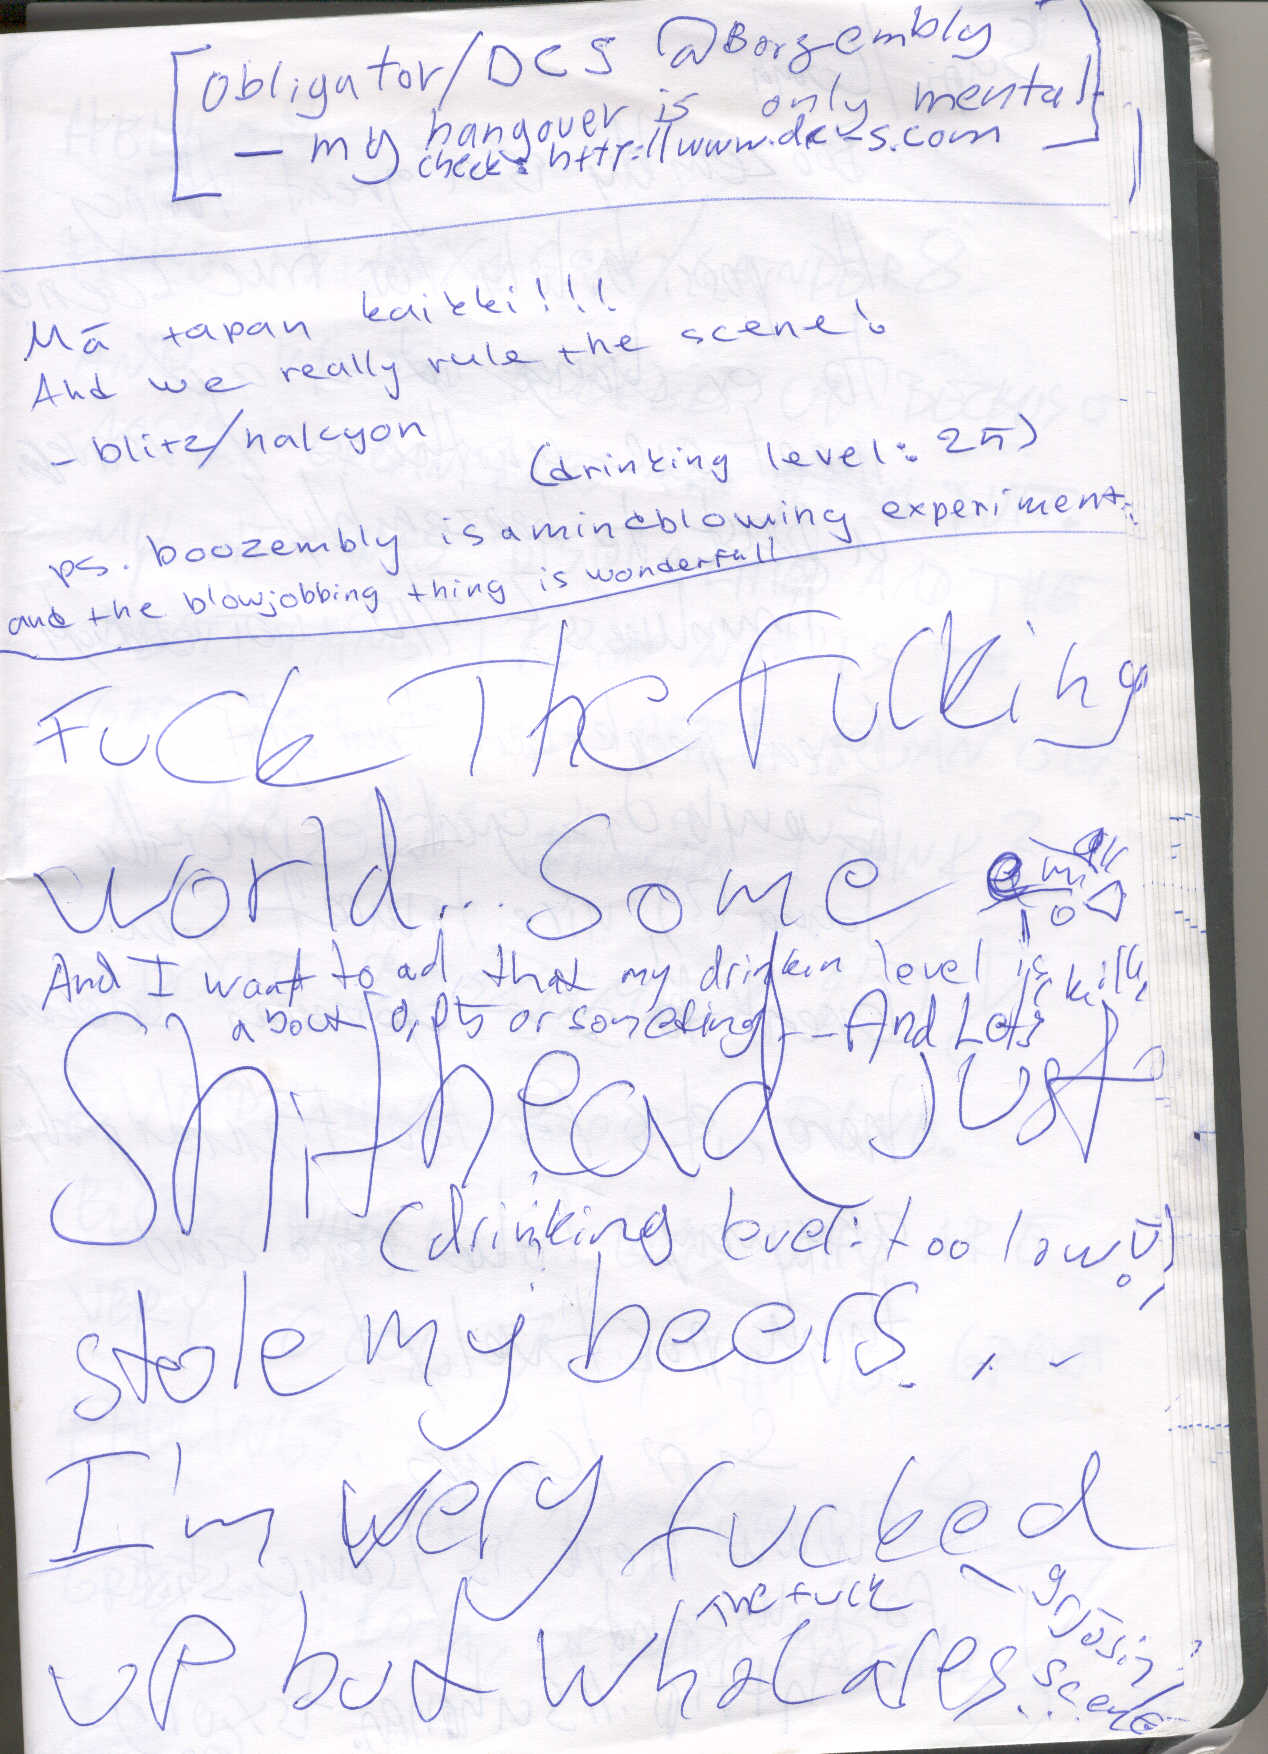 Obligator/DCS @Borzembly
— my hangover is only mental
check: http://www.dc-s.com
Mä tapan kaikki!!!
And we really rule the scene!
- blitz/halcyon
(drinking level: 2π)
ps. boozembly is a mindblowing experiment
and the blowjobbing thing is wonderfull
Fuck The Fucking
world... Some
And I want to ad that my drinkin level is
about or someting -- And Lets kill
Shithead just
(drinking level: too low!)
stole my beers...
I'm wery fucked
up but what ares...
The fuck
scene